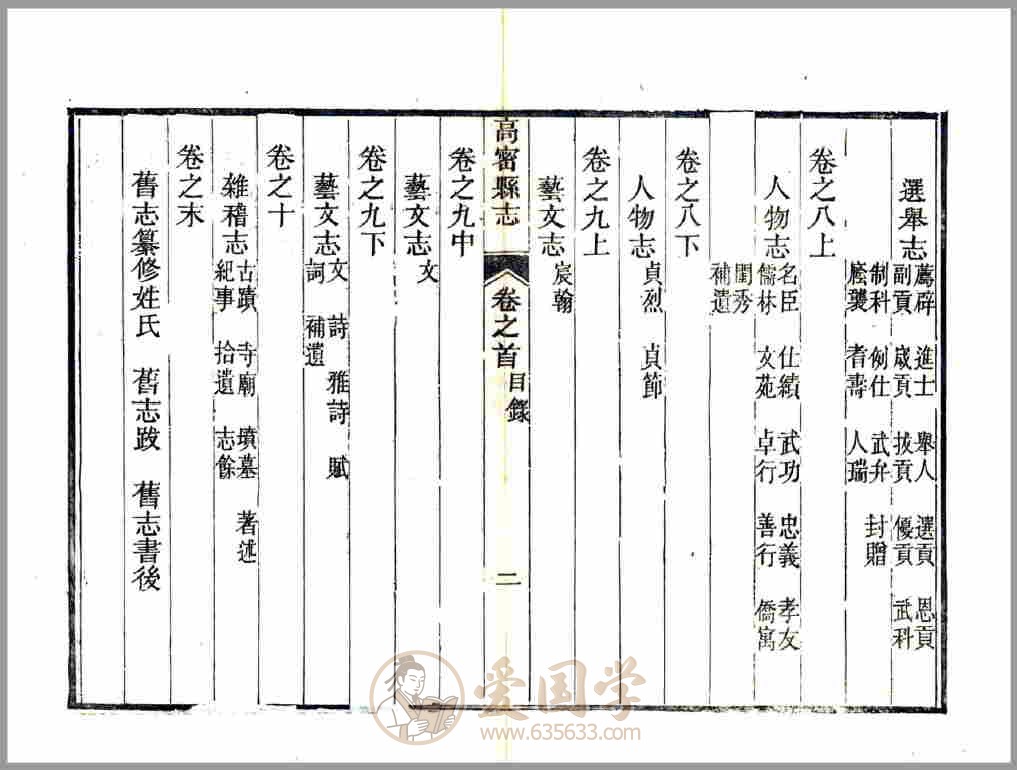 選舉志
薦辟 進士 舉人 選貢 恩貢
副貢 歲貢 拔貢 優貢 武科
制科 例仕 武弁 封贈
廕襲 耆壽 人瑞
卷之八上
人物志
名臣 仕績 武功 忠義 孝友
儒林 文苑 卓行 善行 僑寓
閨秀
補遺
卷之八下
人物志 貞烈 貞節
卷之九上
藝文志 宸翰
高密縣志 卷之首 目錄 二
卷之九中
藝文志 文
卷之九下
藝文志
文 詩 雅詩 賦
詞 補遺
卷之十
雜稽志
古蹟 寺廟 墳墓 著述
紀事 拾遺 志餘
卷之末
舊志纂修姓氏 舊志跋 舊志書後
爱国学
www.635633.com